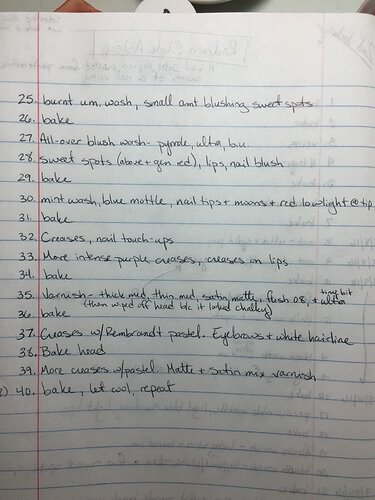 25. burnt um. wash, small amt blushing sweet spots
26. bake
27. All-over blush wash - pyrrole, ultra, b.u.
28. sweet spots (above + gen red), lips, nail blush
29. bake
30. mint wash, blue mottle, nail tips + moons + red lowlight @ tip
31. bake
32. Creases, nail touch-ups
33. More intense purple creases, creases on lips
34. bake
35. Varnish - thick med, thin med, satin, matte, flesh 08, + tiny bit ultra
(then wiped off head b/c it looked chalky)
36. bake
37. Creases w/Rembrandt pastel. Eyebrows + white hairline
38. Bake head
39. More creases w/pastel. Matte + satin mix varnish
40. bake, let cool, repeat